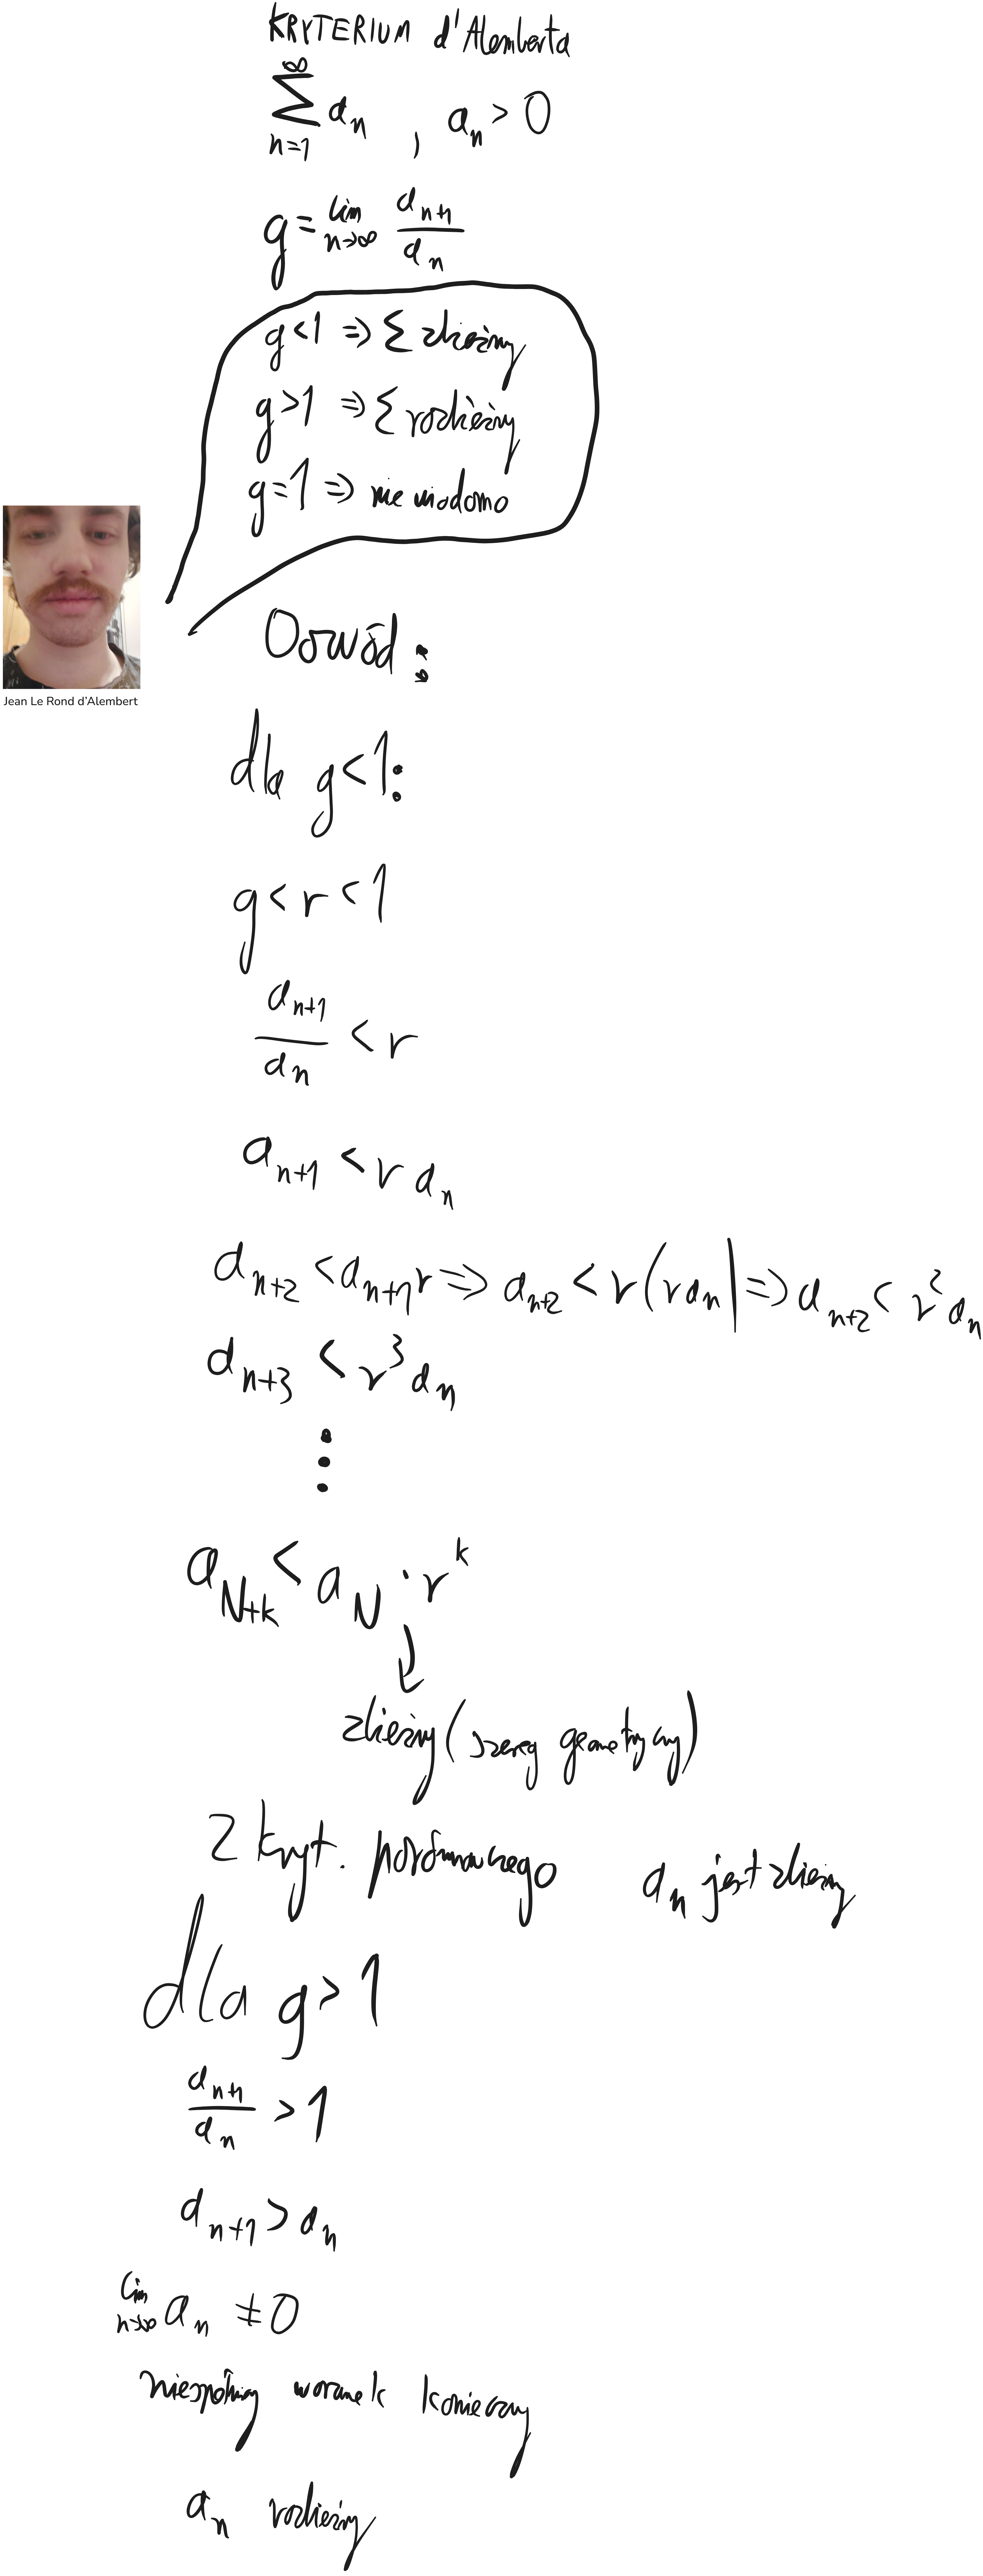 KRYTERIUM d'Alemberta
∞
∑ aₙ , aₙ > 0
n=1
g = lim aₙ₊₁ / aₙ
n→∞
g < 1 ⇒ Σ zbieżny
g > 1 ⇒ Σ rozbieżny
g = 1 ⇒ nie wiadomo
Jean Le Rond d'Alembert
Dowód:
dla g < 1:
g < r < 1
aₙ₊₁ / aₙ < r
aₙ₊₁ < r aₙ
aₙ₊₂ < aₙ₊₁ r ⇒ aₙ₊₂ < r(r aₙ) ⇒ aₙ₊₂ < r² aₙ
aₙ₊₃ < r³ aₙ
⋮
a_{N+k} < a_N · r^k
↓
zbieżny (szereg geometryczny)
Z kryt. porównawczego aₙ jest zbieżny
dla g > 1
aₙ₊₁ / aₙ > 1
aₙ₊₁ > aₙ
lim aₙ ≠ 0
n→∞
niespełniony warunek konieczny
aₙ rozbieżny